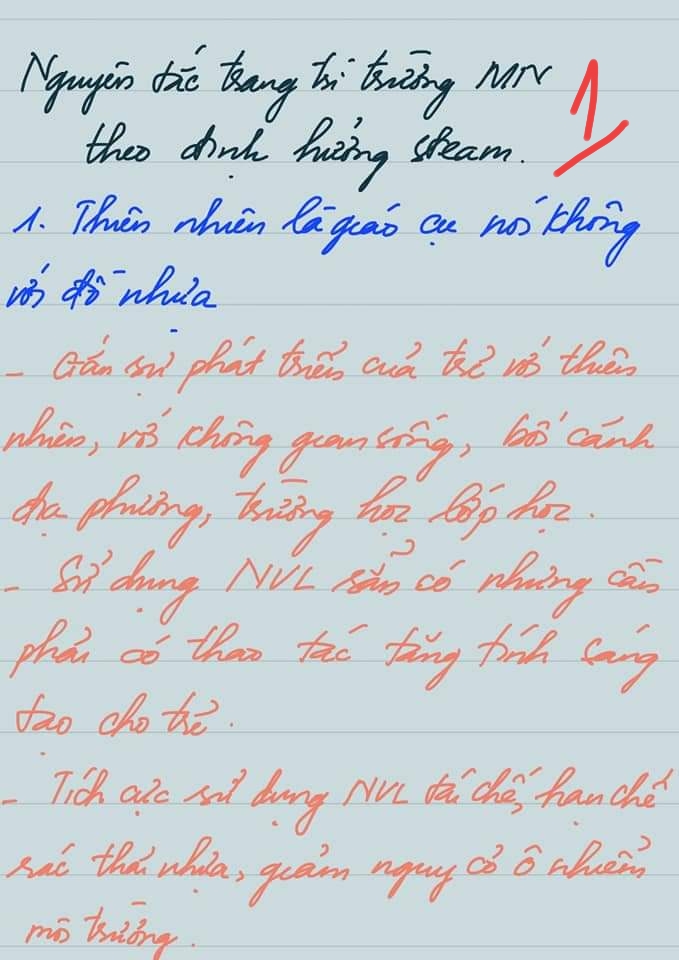 Nguyên tắc trang trí trường MN
1
theo định hướng steam.
1. Thiên nhiên là giáo cụ nói không
với đồ nhựa
- Gắn sự phát triển của trẻ với thiên
nhiên, với không gian sống, bối cảnh
địa phương, trường học lớp học.
- Sử dụng NVL sẵn có nhưng cần
phải có thao tác tăng tính sáng
tạo cho trẻ.
- Tích cực sử dụng NVL tái chế, hạn chế
rác thải nhựa, giảm nguy cơ ô nhiễm
môi trường.